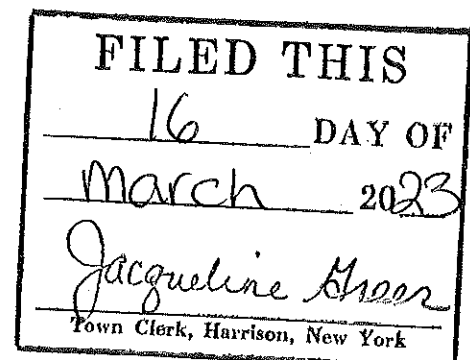 FILED THIS
16 DAY OF
March 2023
Jacqueline Greer
Town Clerk, Harrison, New York